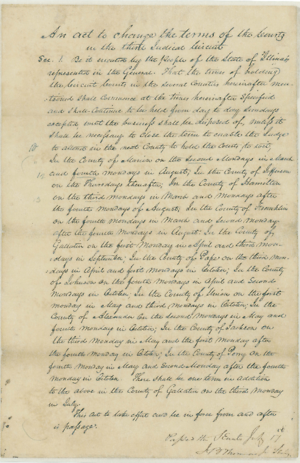 An act to change the terms of the courts
in the third Judicial Circuit
Sec. 1. Be it enacted by the People of the State of Illinois
represented in the General That the times of holding
the Circuit Courts in the several Counties hereinafter men-
tioned shall commence at the times hereinafter specified
and shall continue to be held from day to day Sundays
excepted until the business shall be disposed of, unless it
shall be necessary to close the term to enable the Judge
to attend in the next County to hold the Courts (to wit)
In the County of Marion on the second Mondays in March
and fourth mondays in August, In the County of Jefferson
on the Thursdays thereafter, In the County of Hamilton
on the third mondays in March and Mondays after
the fourth mondays of August, In the County of Franklin
on the fourth mondays in March and Second monday
after the fourth Mondays in August In the County of
Gallatin on the first Monday in April and third mon-
days in September, In the County of Pope on the third mon-
days in April and first mondays in October, In the County
of Johnson on the fourth Mondays in April and Second
Mondays in October, In the County of Union on the first
mondays in May and third mondays in October, In the
County of Alexander on the second Mondays in May and
fourth Monday in October, In the County of Jackson on
the third Monday in May and the first Monday after
the fourth monday in October, In the County of Perry on the
fourth monday in May and Second Monday after the fourth
Monday in October. There shall be one term in addition
to the above in the County of Gallatin on the third Monday
in July.
This act to take effect and be in force from and after
its passage.
Passed the Senate July 18